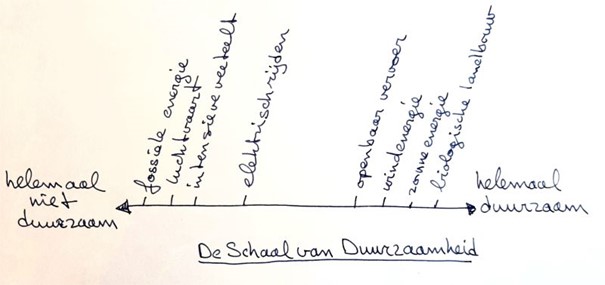 helemaal
niet
duurzaam
fossiele energie
luchtvaart
intensieve veeteelt
elektrisch rijden
openbaar vervoer
windenergie
zonne energie
biologische landbouw
helemaal
duurzaam
De Schaal van Duurzaamheid